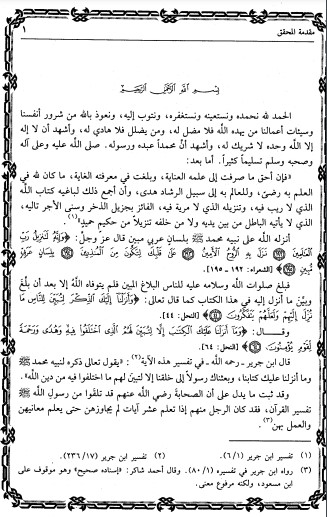 مقدمة المحقق
١
بسم الله الرحمن الرحيم
الحمد لله نحمده ونستعينه ونستغفره، ونتوب إليه، ونعوذ بالله من شرور أنفسنا
وسيئات أعمالنا من يهده الله فلا مضل له، ومن يضلل فلا هادي له، وأشهد أن لا إله
إلا الله وحده لا شريك له، وأشهد أنَّ محمداً عبده ورسوله. صلى الله عليه وعلى آله
وصحبه وسلم تسليماً كثيراً. أما بعد:
«فإن أحق ما صرفت إلى علمه العناية، وبلغت في معرفته الغاية، ما كان لله في
العلم به رضىً، وللعالم به إلى سبيل الرشاد هدى، وأن أجمع ذلك لباغيه كتاب الله
الذي لا ريب فيه، وتنزيله الذي لا مرية فيه، الفائز بجزيل الذخر وسنى الأجر تاليه،
الذي لا يأتيه الباطل من بين يديه ولا من خلفه تنزيلاً من حكيم حميد»(١).
أنزله الله على نبيه محمد ﷺ بلسان عربي مبين قال عز وجل: ﴿وَإِنَّهُ لَتَنزِيلُ رَبِّ
الْعَالَمِينَ ﴿١٩٢﴾ نَزَلَ بِهِ الرُّوحُ الْأَمِينُ ﴿١٩٣﴾ عَلَىٰ قَلْبِكَ لِتَكُونَ مِنَ الْمُنذِرِينَ ﴿١٩٤﴾ بِلِسَانٍ عَرَبِيٍّ
مُّبِينٍ ﴿١٩٥﴾﴾ [الشعراء: ١٩٢ - ١٩٥].
فبلغ صلوات الله وسلامه عليه للناس البلاغ المبين فلم يتوفاه الله إلا بعد أن بلَّغ
وبيَّن ما أنزل إليه في هذا الكتاب كما قال تعالى: ﴿وَأَنزَلْنَا إِلَيْكَ الذِّكْرَ لِتُبَيِّنَ لِلنَّاسِ مَا
نُزِّلَ إِلَيْهِمْ وَلَعَلَّهُمْ يَتَفَكَّرُونَ ﴿٤٤﴾﴾ [النحل: ٤٤].
وقال: ﴿وَمَا أَنزَلْنَا عَلَيْكَ الْكِتَابَ إِلَّا لِتُبَيِّنَ لَهُمُ الَّذِي اخْتَلَفُوا فِيهِ وَهُدًى وَرَحْمَةً
لِّقَوْمٍ يُؤْمِنُونَ ﴿٦٤﴾﴾ [النحل: ٦٤].
قال ابن جرير - رحمه الله - في تفسير هذه الآية(٢): «يقول تعالى ذكره لنبيه محمد ﷺ
وما أنزلنا عليك كتابنا، وبعثناك رسولاً إلى خلقنا إلا لتبين لهم ما اختلفوا فيه من دين الله».
وقد ثبت ما يدل على أن الصحابة رضي الله عنهم قد تلقوا من رسولِ الله ﷺ
تفسير القرآن، فقد كان الرجل منهم إذا تعلم عشر آيات لم يجاوزهن حتى يعلم معانيهن
والعمل بهن(٣).
(١) تفسير ابن جرير (٦/١).
(٢) تفسير ابن جرير (٢٣٦/١٧).
(٣) رواه ابن جرير في تفسيره (٨٠/١). وقال أحمد شاكر: «إسناده صحيح» وهو موقوف على
ابن مسعود، ولكنه مرفوع معنى.